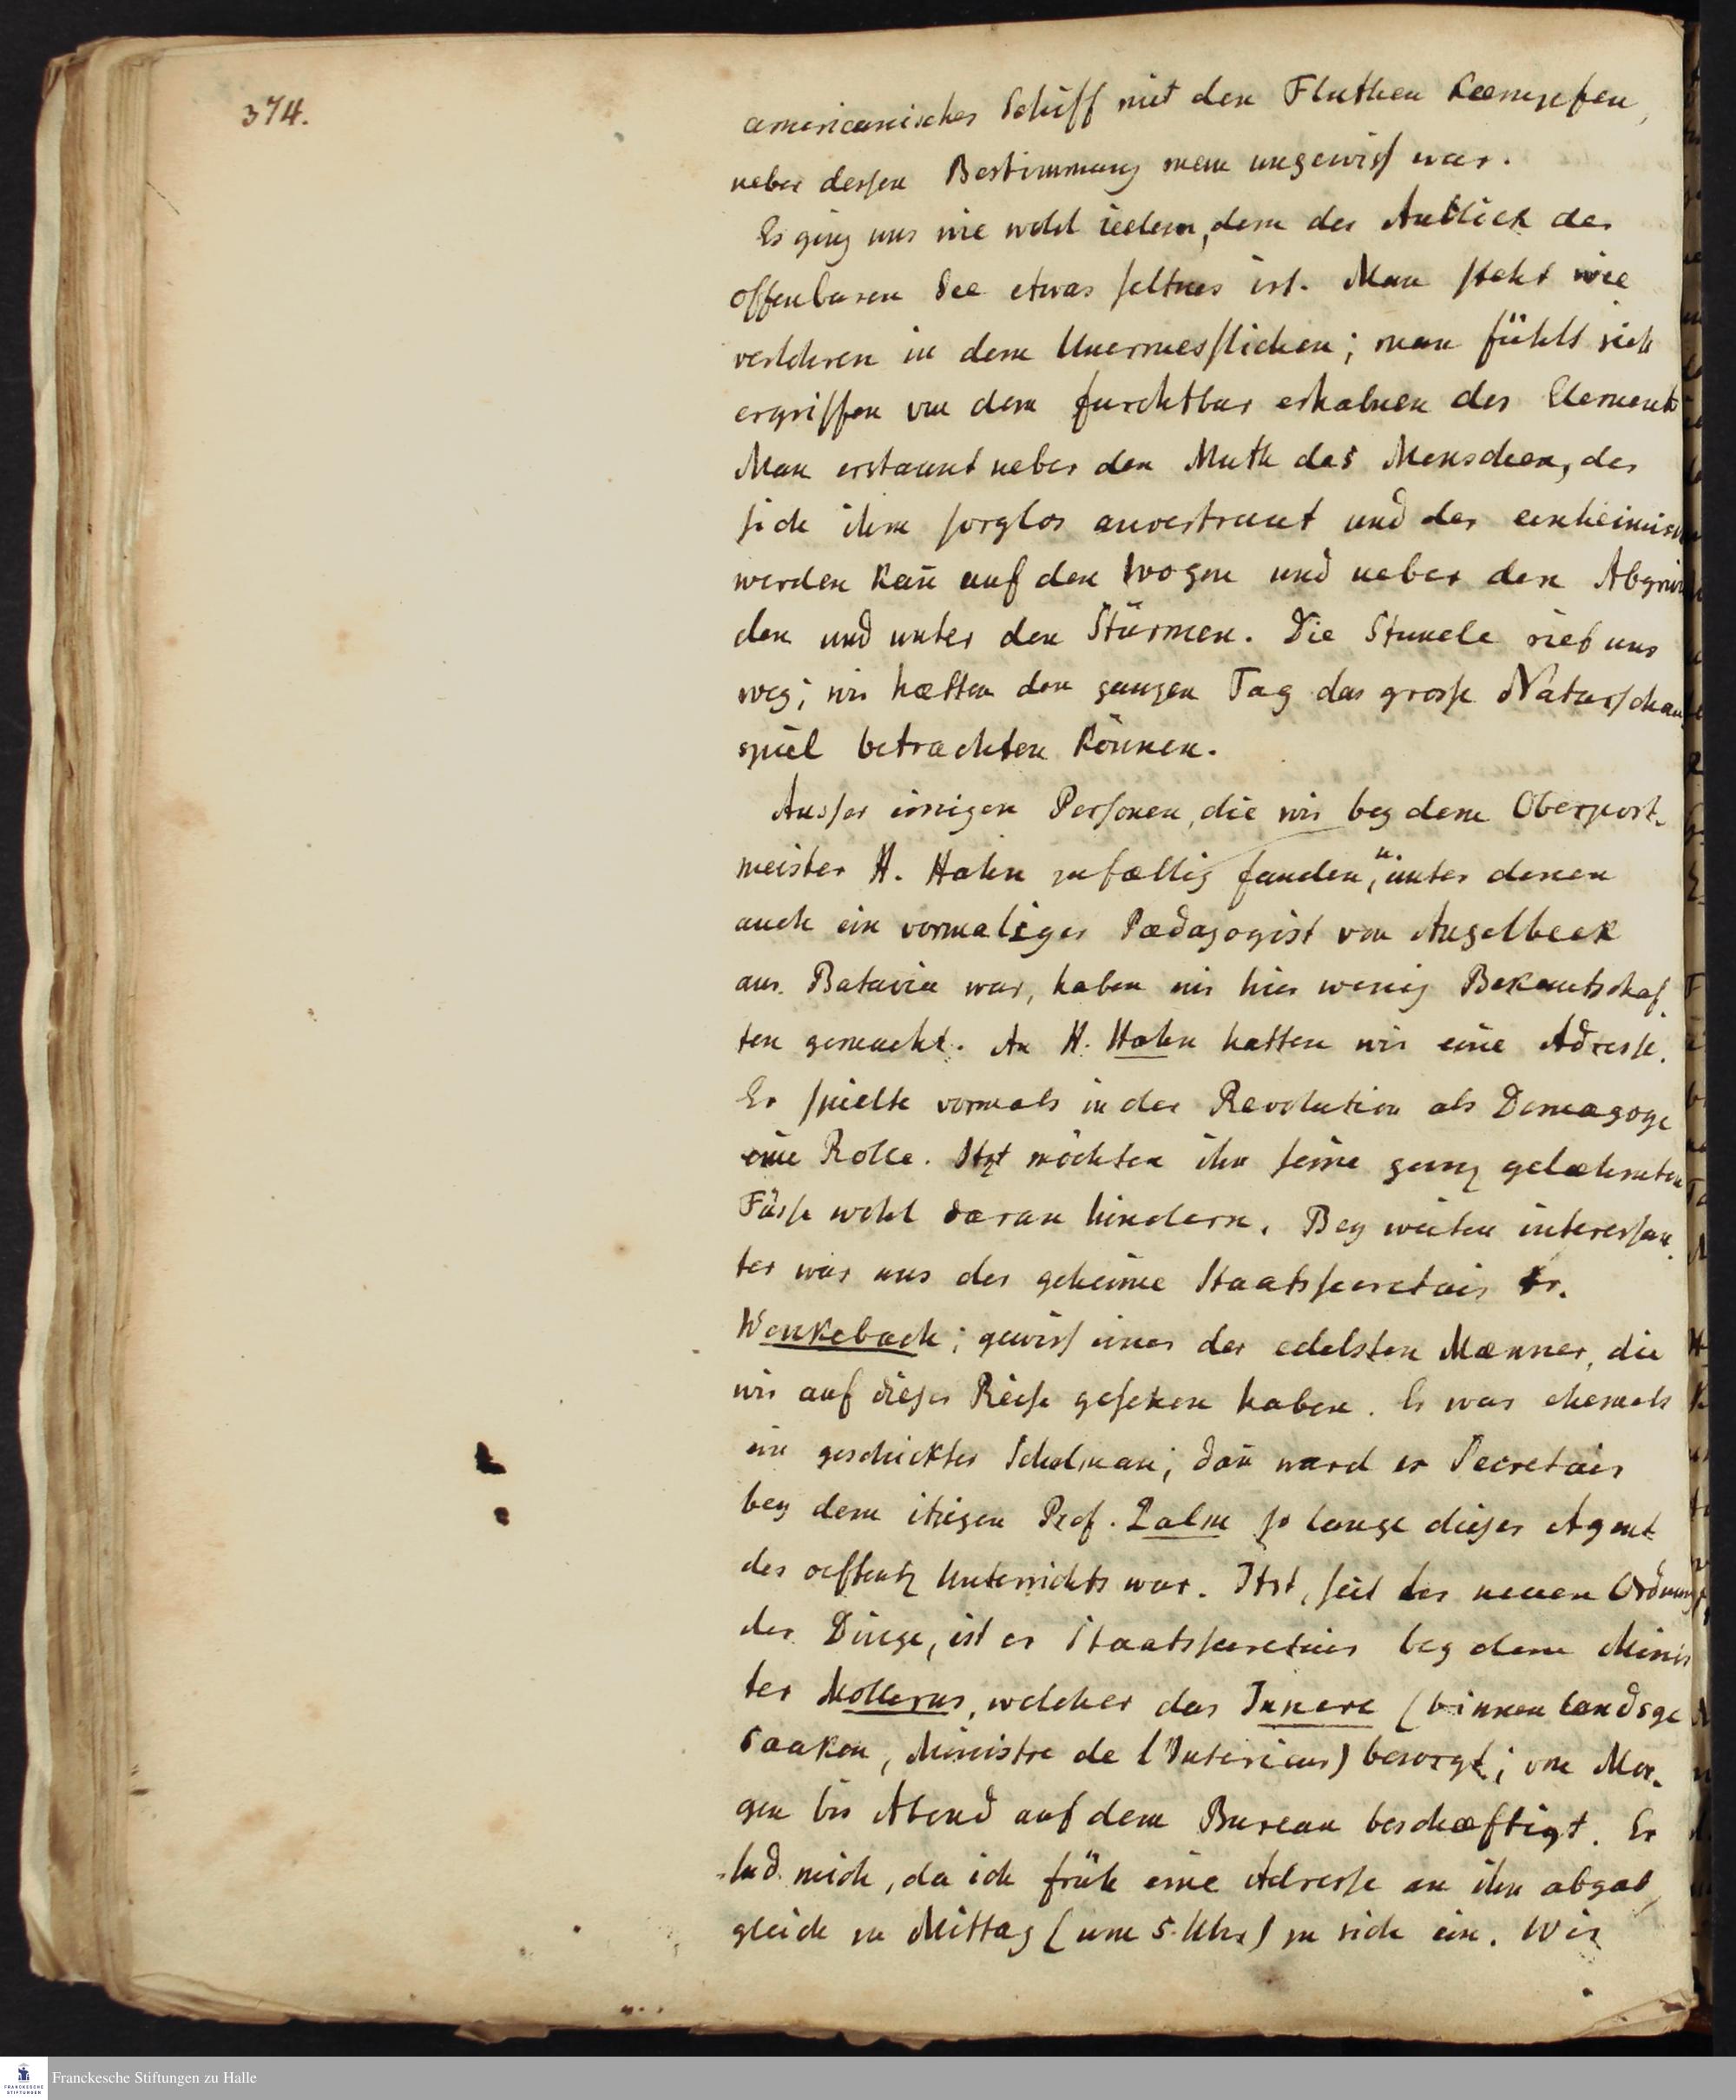 374.
americanisches Schiff mit den Fluthen kæmpfen,
ueber dessen Bestimmung man ungewiss war.
Es ging uns wie wohl iedem, dem der Anblick der
offenbaren See etwas seltnes ist. Man steht wie
verlohren in dem Unermesslichen; man fühlt sich
ergriffen von dem furchtbar erhabnen des Elements
Man erstaunt ueber den Muth des Menschen, der
sich ihm sorglos anvertraut und der einheimisch
werden kan̄ auf den Wogen und ueber den Abgrün
den und unter den Stürmen. Die Stunde rief uns
weg; wir hætten den ganzen Tag das grosse Naturschau
spiel betrachten können.
Ausser einigen Personen, die wir bey dem Oberpost-
meister H. Hahn zufællig fanden, u. unter denen
auch ein vormaliger Pædagogist von Angelbeek
aus Batavia war, haben wir hier wenig Bekantschaf-
ten gemacht. An H. Hahn hatten wir eine Adresse.
Er spielte vormals in der Revolution als Demagoge
eine Rolle. Itzt möchten ihn seine ganz gelæhmten
Füsse wohl daran hindern. Bey weiten interessan-
ter war uns der geheime Staatssecretair Hr.
Wenkebach; gewiss einer der edelsten Mænner, die
wir auf dieser Reise gesehen haben. Er war ehemals
ein geschickter Schulman̄; dan̄ ward er Secretair
bey dem itzigen Prof. Palm so lange dieser Agent
des oeffentl. Unterrichts war. Itzt, seit der neuen Ordnung
der Dinge, ist er Staatssecretair bey dem Minis
ter Mollerus, welcher das Innere (binnenlandsge
saaken, Ministre de l'Interieur) besorgt; von Mor-
gen bis Abend auf dem Bureau beschæftigt. Er
lud mich, da ich früh eine Adresse an ihn abgab,
gleich zu Mittag (um 5. Uhr) zu sich ein. Wir
Franckesche Stiftungen zu Halle
FRANCKESCHE
STIFTUNGEN